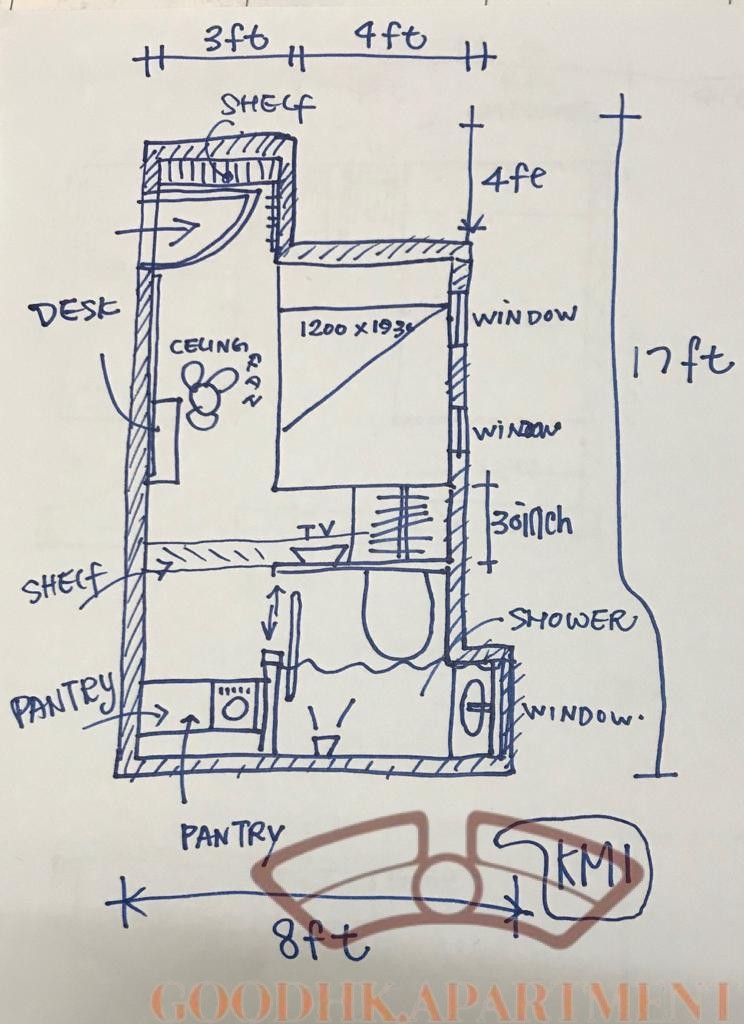 3ft
4ft
SHELF
4ft
DESK
CELING
FAN
1200 x 1930
WINDOW
17ft
WINDOW
30inch
TV
SHELF
SHOWER
PANTRY
WINDOW.
PANTRY
KMI
8ft
GOODHK.APARTMENT